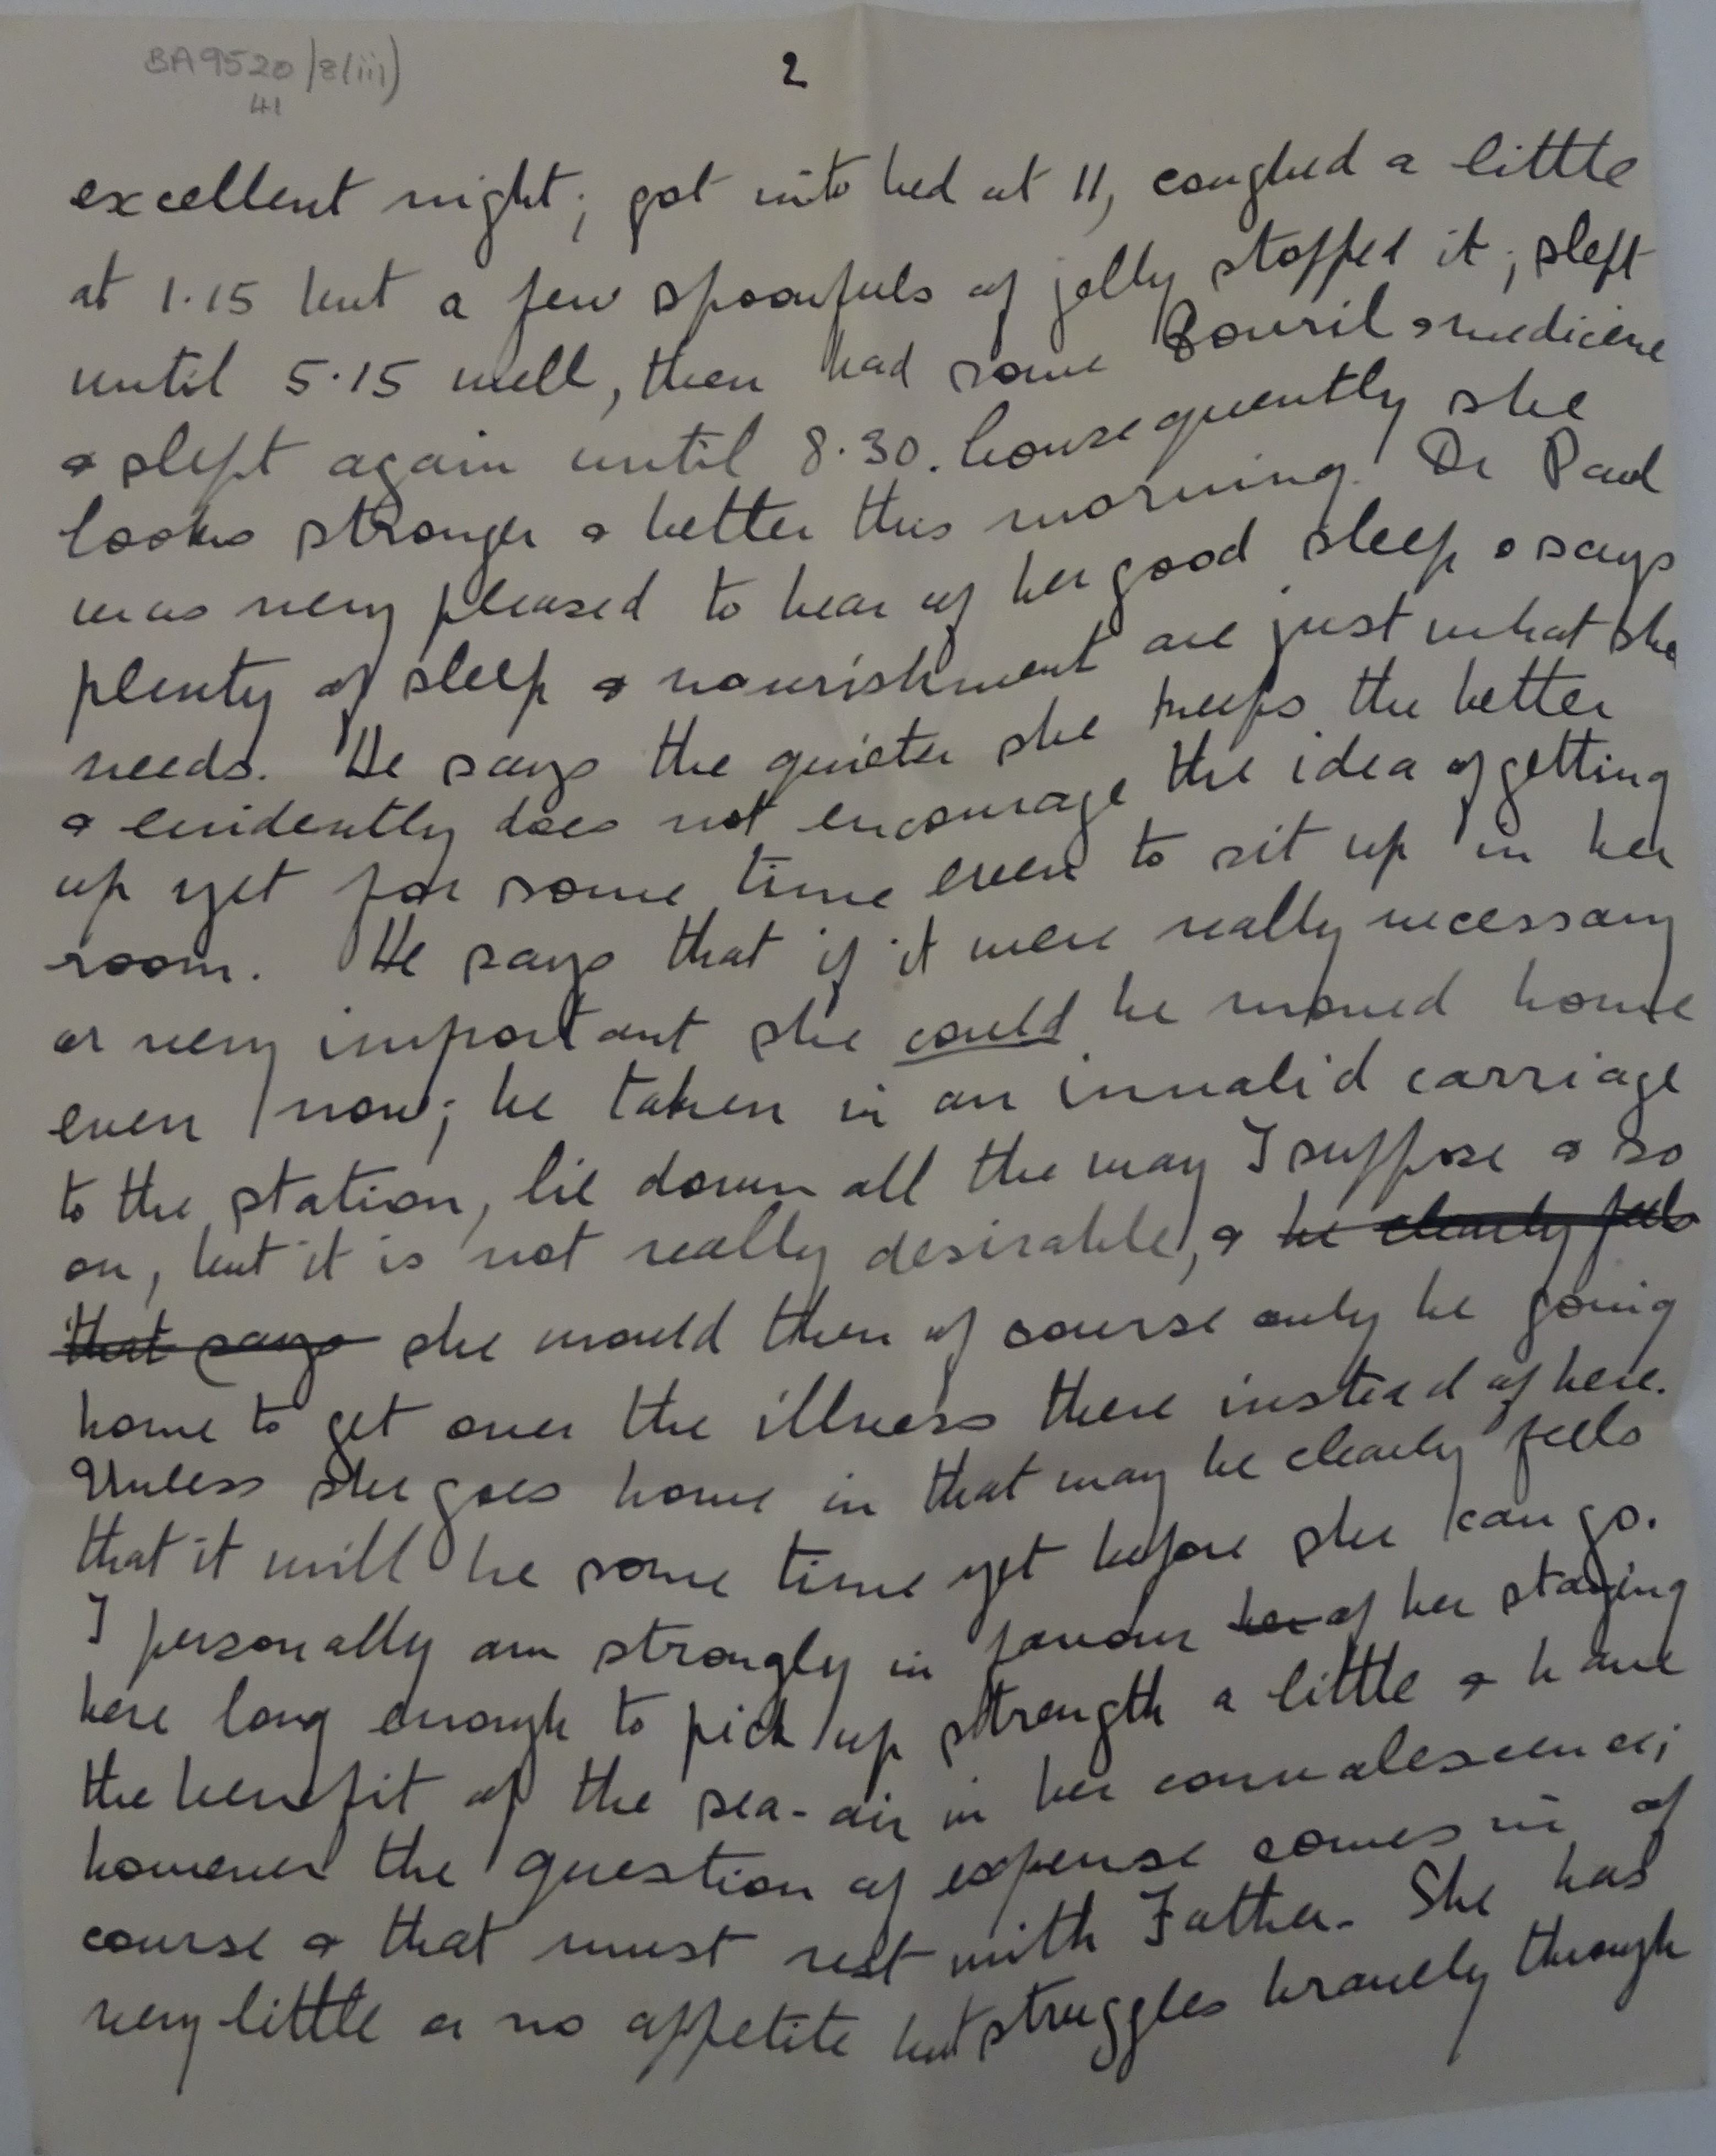 BA9520/8(iii)
41
2
excellent night; got into bed at 11, coughed a little
at 1.15 but a few spoonfuls of jelly stopped it; slept
until 5.15 well, then had some Bovril & medicine
& slept again until 8.30. Consequently she
looks stronger & better this morning. Dr Paul
was very pleased to hear of her good sleep & says
plenty of sleep & nourishment are just what she
needs. He says the quieter she keeps the better
& evidently does not encourage the idea of getting
up yet for some time even to sit up in her
room. He says that if it were really necessary
or very important she could be moved home
even now; be taken in an invalid carriage
to the station, lie down all the way I suppose & so
on, but it is not really desirable, & he clearly feels
that says she would then of course only be going
home to get over the illness there instead of here.
Unless she goes home in that way he clearly feels
that it will be some time yet before she can go.
I personally am strongly in favour her of her staying
here long enough to pick up strength a little & have
the benefit of the sea-air in her convalescence;
however the question of expense comes in of
course & that must rest with Father. She has
very little or no appetite but struggles bravely through